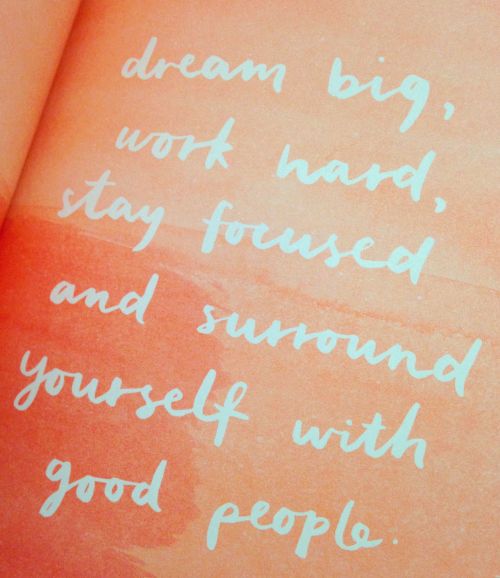 dream big,
work hard,
stay focused
and surround
yourself with
good people.